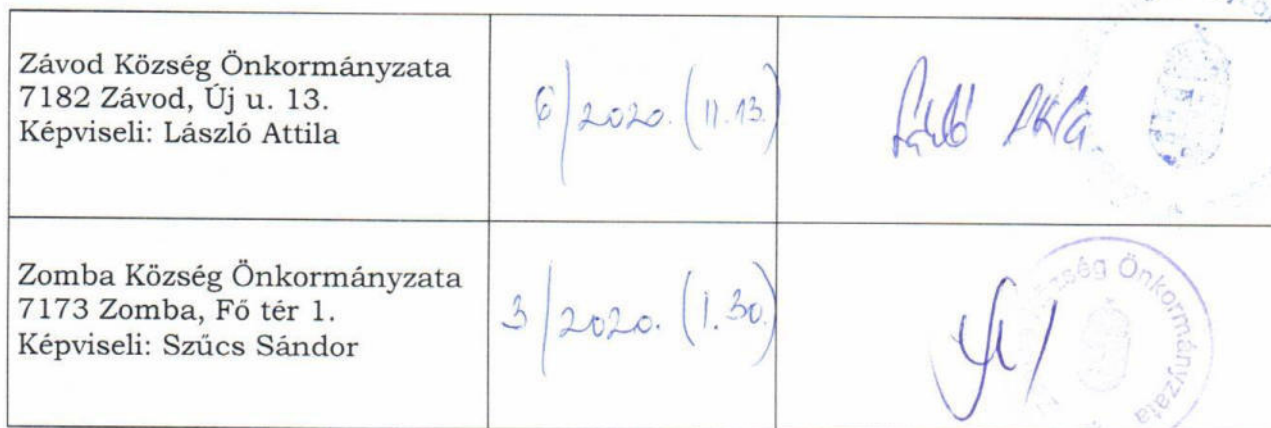 Závod Község Önkormányzata
7182 Závod, Új u. 13.
Képviseli: László Attila
6/2020. (II.13.)
Zomba Község Önkormányzata
7173 Zomba, Fő tér 1.
Képviseli: Szűcs Sándor
3/2020. (I.30.)
Község Önkormányzata